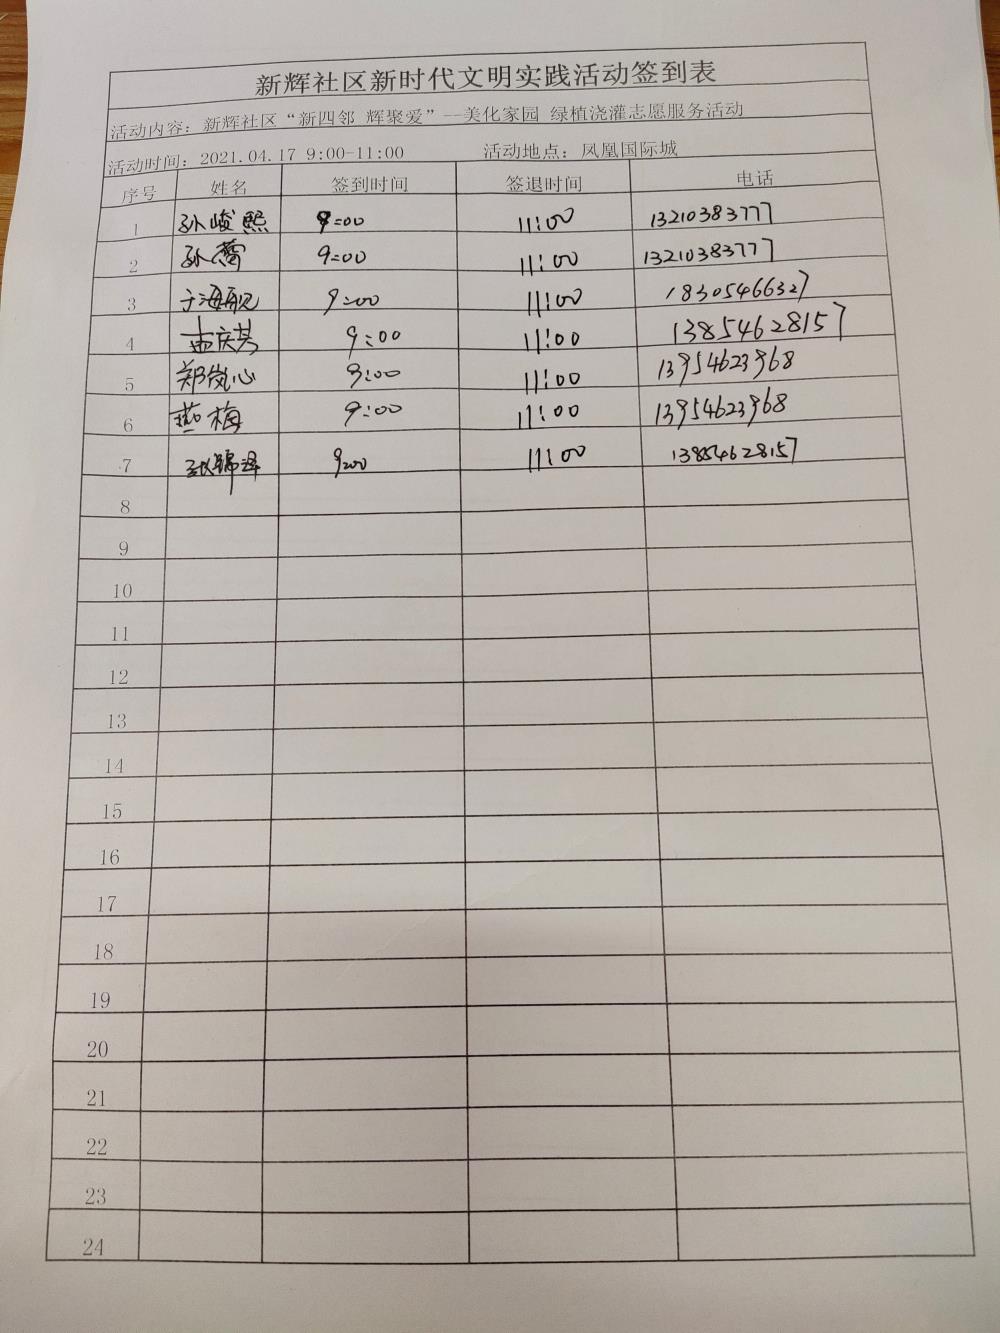 新辉社区新时代文明实践活动签到表
活动内容：新辉社区“新四邻 辉聚爱”--美化家园 绿植浇灌志愿服务活动
活动时间：2021.04.17 9:00-11:00 活动地点：凤凰国际城
序号 姓名 签到时间 签退时间 电话
1 孙峻熙 9:00 11:00 13210383777
2 孙蕾 9:00 11:00 13210383777
3 于海舰 9:00 11:00 18305466327
4 孟庆芳 9:00 11:00 13854628157
5 郑岚心 9:00 11:00 13954623968
6 燕梅 9:00 11:00 13954623968
7 张锦泽 9:00 11:00 13854628157
8
9
10
11
12
13
14
15
16
17
18
19
20
21
22
23
24